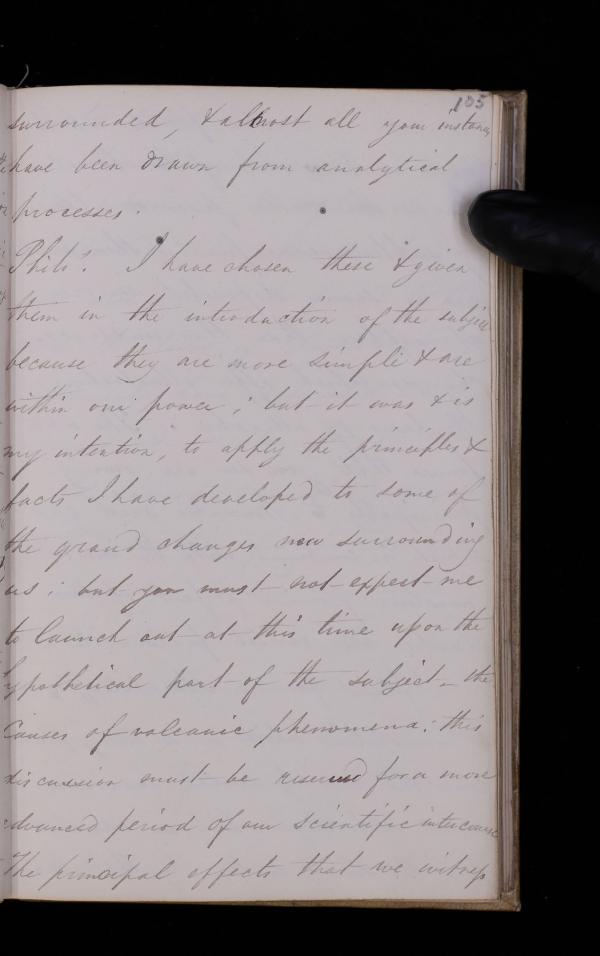 105
surrounded, & almost all your instances
have been drawn from analytical
processes.
Philo'. I have chosen these & given
them in the introduction of the subject
because they are more simple & are
within our power; but it was & is
my intention, to apply the principles &
facts I have developed to some of
the grand changes now surrounding
us; but you must not expect me
to launch out at this time upon the
hypothetical part of the subject – the
Causes of volcanic phenomena; this
discussion must be reserved for a more
advanced period of our scientific intercourse
The principal effects that we witness